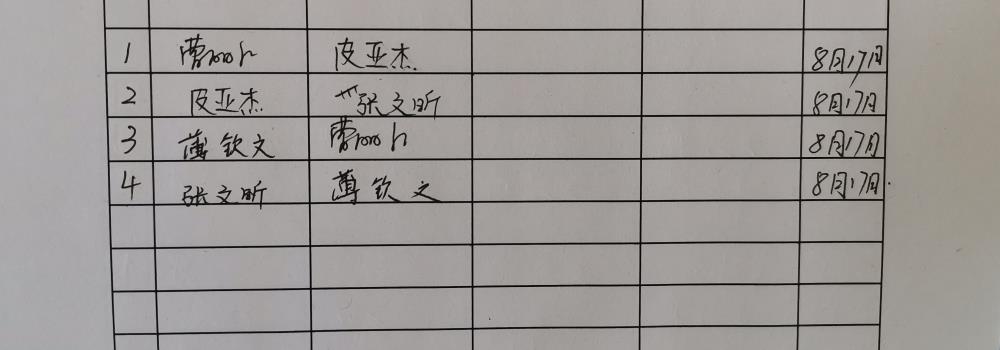 1 曹 皮亚杰 8月17月
2 皮亚杰 张文昕 8月17月
3 薄钦文 曹 8月17月
4 张文昕 薄钦文 8月17月.